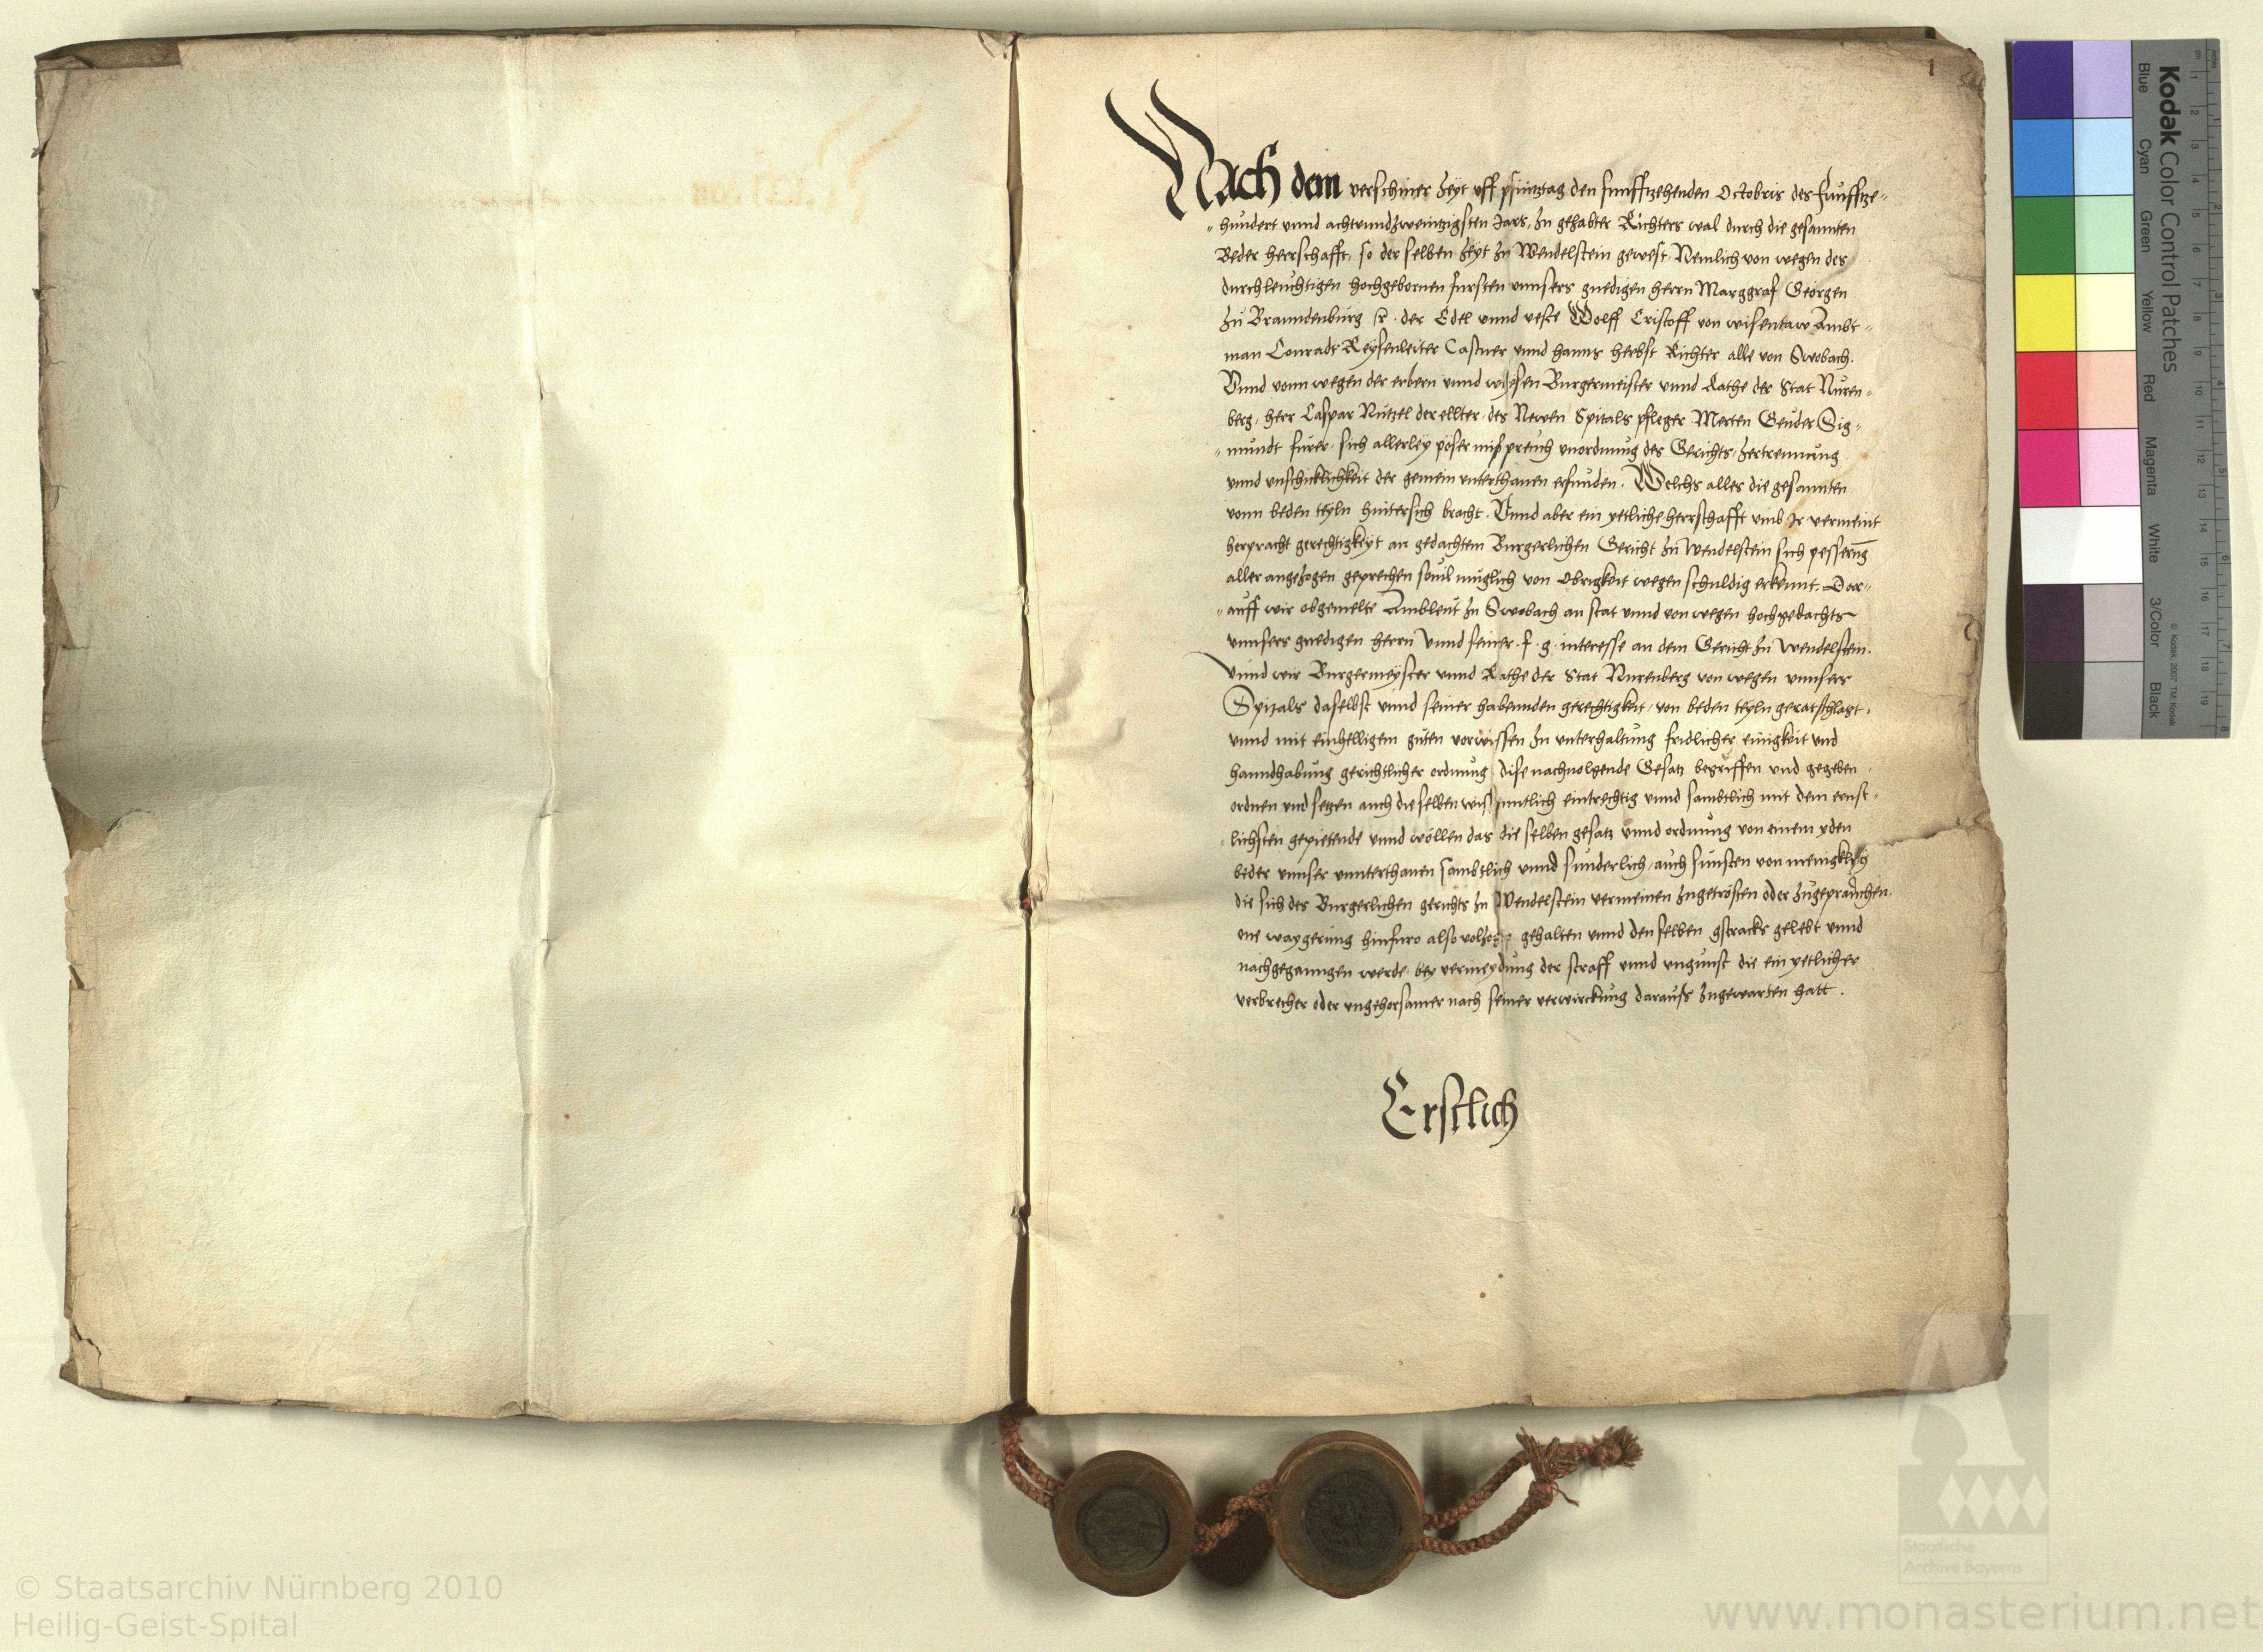 1
Nach dem verschiner zeyt uff pfintztag den funfftzehenden Octobris des funfftze-
hundert unnd achtundzweintzigsten Jars, zu gehabter Richters wal durch die gesannten
Beder herrschafft, so der selben zeyt zu Wendelstein gewest, Nemlich von wegen des
durchleuchtigen hochgebornen fursten unnsers gnedigen herrn Marggraf Georgen
zu Branndenburg der Edel unnd veste Wolff Cristoff von wisentaw Ambt-
man Conradt Reysenleiter Castner unnd Hanns herbst Richter alle von Swobach.
Vnnd vonn wegen der erbern unnd weysen Burgermeister unnd Rathe der Stat Nuren-
berg, herr Caspar Nutzel der ellter, des Newen Spitals pfleger Merten Geuder Sig-
mundt furer, sich allerley poser mißpreuch unordnung des Gerichts zertrennung
unnd unschicklichkeit der gemein unterthanen erfunden. Welchs alles die gesannten
vonn beden teyln hintersich bracht. Vnnd aber ein yetliche herrschafft umb Ir vermeint
herpracht gerechtigkeyt an gedachtem Burgerlichen Gericht zu Wendelstein sich pesserung
aller angezogen geprechen souil muglich von Obrigkeit wegen schuldig erkennt. Dar-
auff wir obgemelte Ambleut zu Swobach an stat unnd von wegen hochgedachts
unnsers gnedigen herrn Vnnd seiner. f. g. interesse an dem Gericht zu Wendelstein.
Vnnd wir Burgermeyster unnd Rathe der Stat Nurenberg von wegen unnsers
Spitals daselbst unnd seiner habennden gerechtigkeit, von beden teyln geratschlagt.
unnd mit einhelligem guten vorwissen zu unterhaltung fridlicher einigkeit und
hanndhabung gerichtlicher ordnung dise nachuolgende Gesatz begriffen und gegeben
ordnen und setzen auch die selben wissentlich eintrechtig unnd sambtlich mit dem ernst-
lichsten gepietende unnd wollen das die selben gesatz unnd ordnung von einem yden
beder unnser unnterthanen sambtlich unnd sunderlich, auch sunsten von menigklich
die sich des Burgerlichen gerichts zu Wendelstein vermeinen zugetrosten oder zugeprauchen.
one waygerung hinfuro also gehalten unnd den selben gstracks gelebt unnd
nachgeganngen werde, bey vermeydung der straff unnd ungunst die ein yetlicher
verbrecher oder ungehorsamer nach seiner verwirckung darauß zugewarten hatt.
Erstlich
Kodak Color Control Patches
Blue Cyan Green Yellow Red Magenta White 3/Color Black
© Kodak, 2007 TM: Kodak
© Staatsarchiv Nürnberg 2010
Heilig-Geist-Spital
Staatliche
Archive Bayerns
www.monasterium.net